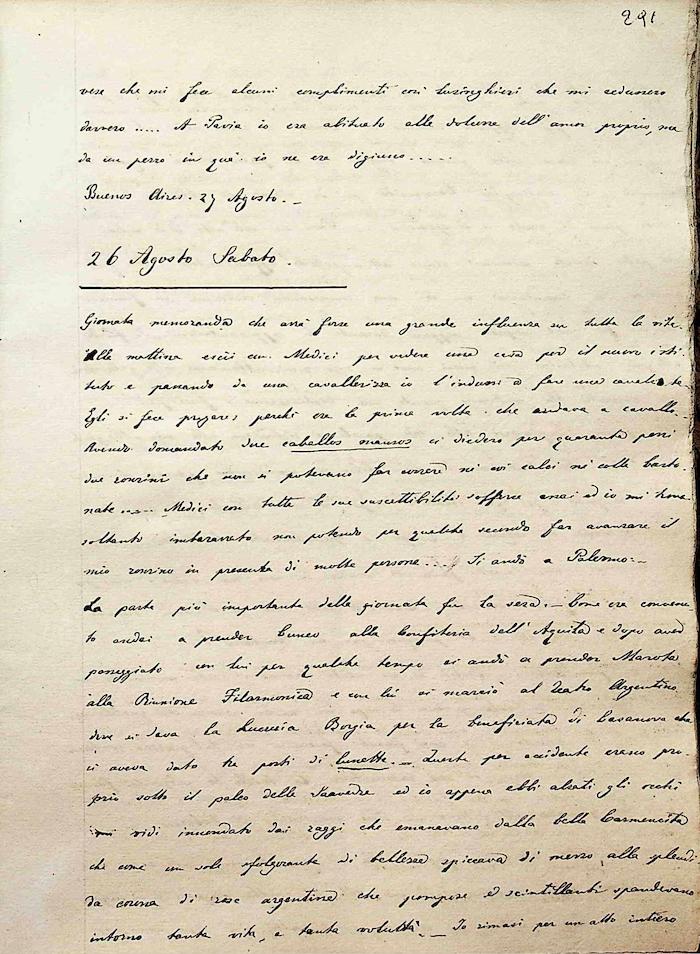 291
vese che mi fece alcuni complimenti così lusinghieri che mi sedussero
davvero ..... A Pavia io era abituato alle dolcezze dell'amor proprio, ma
da un pezzo in quà io ne era digiuno .....
Buenos Aires. 27 Agosto. _
26 Agosto Sabato.
Giornata memoranda che avrà forse una grande influenza su tutta la vita.
Alla mattina escii con Medici per vedere una casa per il nuovo isti
tuto e passando da una cavallerizza io l'indussi a fare una cavalcata.
Egli si fece pregare, perchè era la prima volta che andava a cavallo.
Avendo domandato due caballos mansos ci diedero per quaranta pesi
due ronzini che non si potevano far correre nè coi calci nè colle basto
nate ..... Medici con tutte le sue suscettibilità sofferse assai ed io mi trovai
soltanto imbarazzato non potendo per qualche secondo far avanzare il
mio ronzino in presenza di molte persone .... Si andò a Palermo. _
La parte più importante della giornata fu la sera. _ Come era convenu
to andai a prender Cuneo alla Confiteria dell'Aguila e dopo aver
passeggiato con lui per qualche tempo si andò a prender Marota
alla Riunione Filarmonica e con lui si marciò al Teatro Argentino
dove si dava la Lucrezia Borgia per la beneficiata di Casanova che
ci aveva dato tre posti di lunette. _ Questa per accidente erano pro
prio sotto il palco delle Saavedre ed io appena ebbi alzati gli occhi
mi vidi innondato dai raggi che emanavano dalla bella Carmencita
che come un sole sfolgorante di bellezza spiccava di mezzo alla splendi
da corona di rose argentine che pompose e scintillanti spandevano
intorno tanta vita, e tanta voluttà. _ Io rimasi per un atto intiero